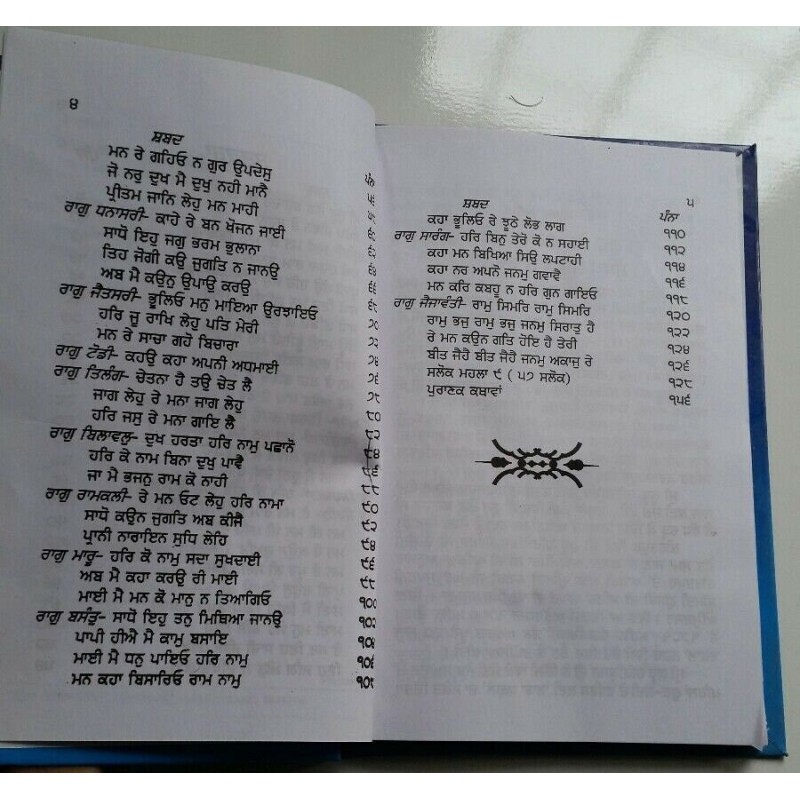 ੪
ਸ਼ਬਦ
ਪੰਨਾ
ਮਨ ਰੇ ਗਹਿਓ ਨ ਗੁਰ ਉਪਦੇਸੁ
ਜੋ ਨਰੁ ਦੁਖ ਮੈ ਦੁਖੁ ਨਹੀ ਮਾਨੈ
ਪ੍ਰੀਤਮ ਜਾਨਿ ਲੇਹੁ ਮਨ ਮਾਹੀ
ਰਾਗੁ ਧਨਾਸਰੀ- ਕਾਹੇ ਰੇ ਬਨ ਖੋਜਨ ਜਾਈ
ਸਾਧੋ ਇਹੁ ਜਗੁ ਭਰਮ ਭੁਲਾਨਾ ੬੨
ਤਿਹ ਜੋਗੀ ਕਉ ਜੁਗਤਿ ਨ ਜਾਨਉ ੬੪
ਅਬ ਮੈ ਕਉਨੁ ਉਪਾਉ ਕਰਉ ੬੬
ਰਾਗੁ ਜੈਤਸਰੀ- ਭੂਲਿਓ ਮਨੁ ਮਾਇਆ ਉਰਝਾਇਓ ੬੮
ਹਰਿ ਜੂ ਰਾਖਿ ਲੇਹੁ ਪਤਿ ਮੇਰੀ ੭੦
ਮਨ ਰੇ ਸਾਚਾ ਗਹੋ ਬਿਚਾਰਾ ੭੨
ਰਾਗੁ ਟੋਡੀ- ਕਹਉ ਕਹਾ ਅਪਨੀ ਅਧਮਾਈ ੭੪
ਰਾਗੁ ਤਿਲੰਗ- ਚੇਤਨਾ ਹੈ ਤਉ ਚੇਤ ਲੈ ੭੬
ਜਾਗ ਲੇਹੁ ਰੇ ਮਨਾ ਜਾਗ ਲੇਹੁ ੭੮
ਹਰਿ ਜਸੁ ਰੇ ਮਨਾ ਗਾਇ ਲੈ ੮੦
ਰਾਗੁ ਬਿਲਾਵਲੁ- ਦੁਖ ਹਰਤਾ ਹਰਿ ਨਾਮੁ ਪਛਾਨੋ ੮੨
ਹਰਿ ਕੇ ਨਾਮ ਬਿਨਾ ਦੁਖੁ ਪਾਵੈ ੮੪
ਜਾ ਮੈ ਭਜਨੁ ਰਾਮ ਕੋ ਨਾਹੀ ੮੬
ਰਾਗੁ ਰਾਮਕਲੀ- ਰੇ ਮਨ ਓਟ ਲੇਹੁ ਹਰਿ ਨਾਮਾ ੮੮
ਸਾਧੋ ਕਉਨ ਜੁਗਤਿ ਅਬ ਕੀਜੈ ੯੦
ਪ੍ਰਾਨੀ ਨਾਰਾਇਨ ਸੁਧਿ ਲੇਹਿ ੯੨
ਰਾਗੁ ਮਾਰੂ- ਹਰਿ ਕੋ ਨਾਮੁ ਸਦਾ ਸੁਖਦਾਈ ੯੪
ਅਬ ਮੈ ਕਹਾ ਕਰਉ ਰੀ ਮਾਈ ੯੬
ਮਾਈ ਮੈ ਮਨ ਕੋ ਮਾਨੁ ਨ ਤਿਆਗਿਓ ੯੮
ਰਾਗੁ ਬਸੰਤੁ- ਸਾਧੋ ਇਹੁ ਤਨੁ ਮਿਥਿਆ ਜਾਨਉ ੧੦੦
ਪਾਪੀ ਹੀਐ ਮੈ ਕਾਮੁ ਬਸਾਇ ੧੦੨
ਮਾਈ ਮੈ ਧਨੁ ਪਾਇਓ ਹਰਿ ਨਾਮੁ ੧੦੪
ਮਨ ਕਹਾ ਬਿਸਾਰਿਓ ਰਾਮ ਨਾਮੁ ੧੦੬
੫
ਸ਼ਬਦ ਪੰਨਾ
ਕਹਾ ਭੂਲਿਓ ਰੇ ਝੂਠੇ ਲੋਭ ਲਾਗ ੧੧੦
ਰਾਗੁ ਸਾਰੰਗ- ਹਰਿ ਬਿਨੁ ਤੇਰੋ ਕੋ ਨ ਸਹਾਈ ੧੧੨
ਕਹਾ ਮਨ ਬਿਖਿਆ ਸਿਉ ਲਪਟਾਹੀ ੧੧੪
ਕਹਾ ਨਰ ਅਪਨੋ ਜਨਮੁ ਗਵਾਵੈ ੧੧੬
ਮਨ ਕਰਿ ਕਬਹੂ ਨ ਹਰਿ ਗੁਨ ਗਾਇਓ ੧੧੮
ਰਾਗੁ ਜੈਜਾਵੰਤੀ- ਰਾਮੁ ਸਿਮਰਿ ਰਾਮੁ ਸਿਮਰਿ ੧੨੦
ਰਾਮੁ ਭਜੁ ਰਾਮੁ ਭਜੁ ਜਨਮੁ ਸਿਰਾਤੁ ਹੈ ੧੨੨
ਰੇ ਮਨ ਕਉਨ ਗਤਿ ਹੋਇ ਹੈ ਤੇਰੀ ੧੨੪
ਬੀਤ ਜੈਹੈ ਬੀਤ ਜੈਹੈ ਜਨਮੁ ਅਕਾਜੁ ਰੇ ੧੨੬
ਸਲੋਕ ਮਹਲਾ ੯ ( ੫੭ ਸਲੋਕ) ੧੨੮
ਪੁਰਾਣਕ ਕਥਾਵਾਂ ੧੫੬